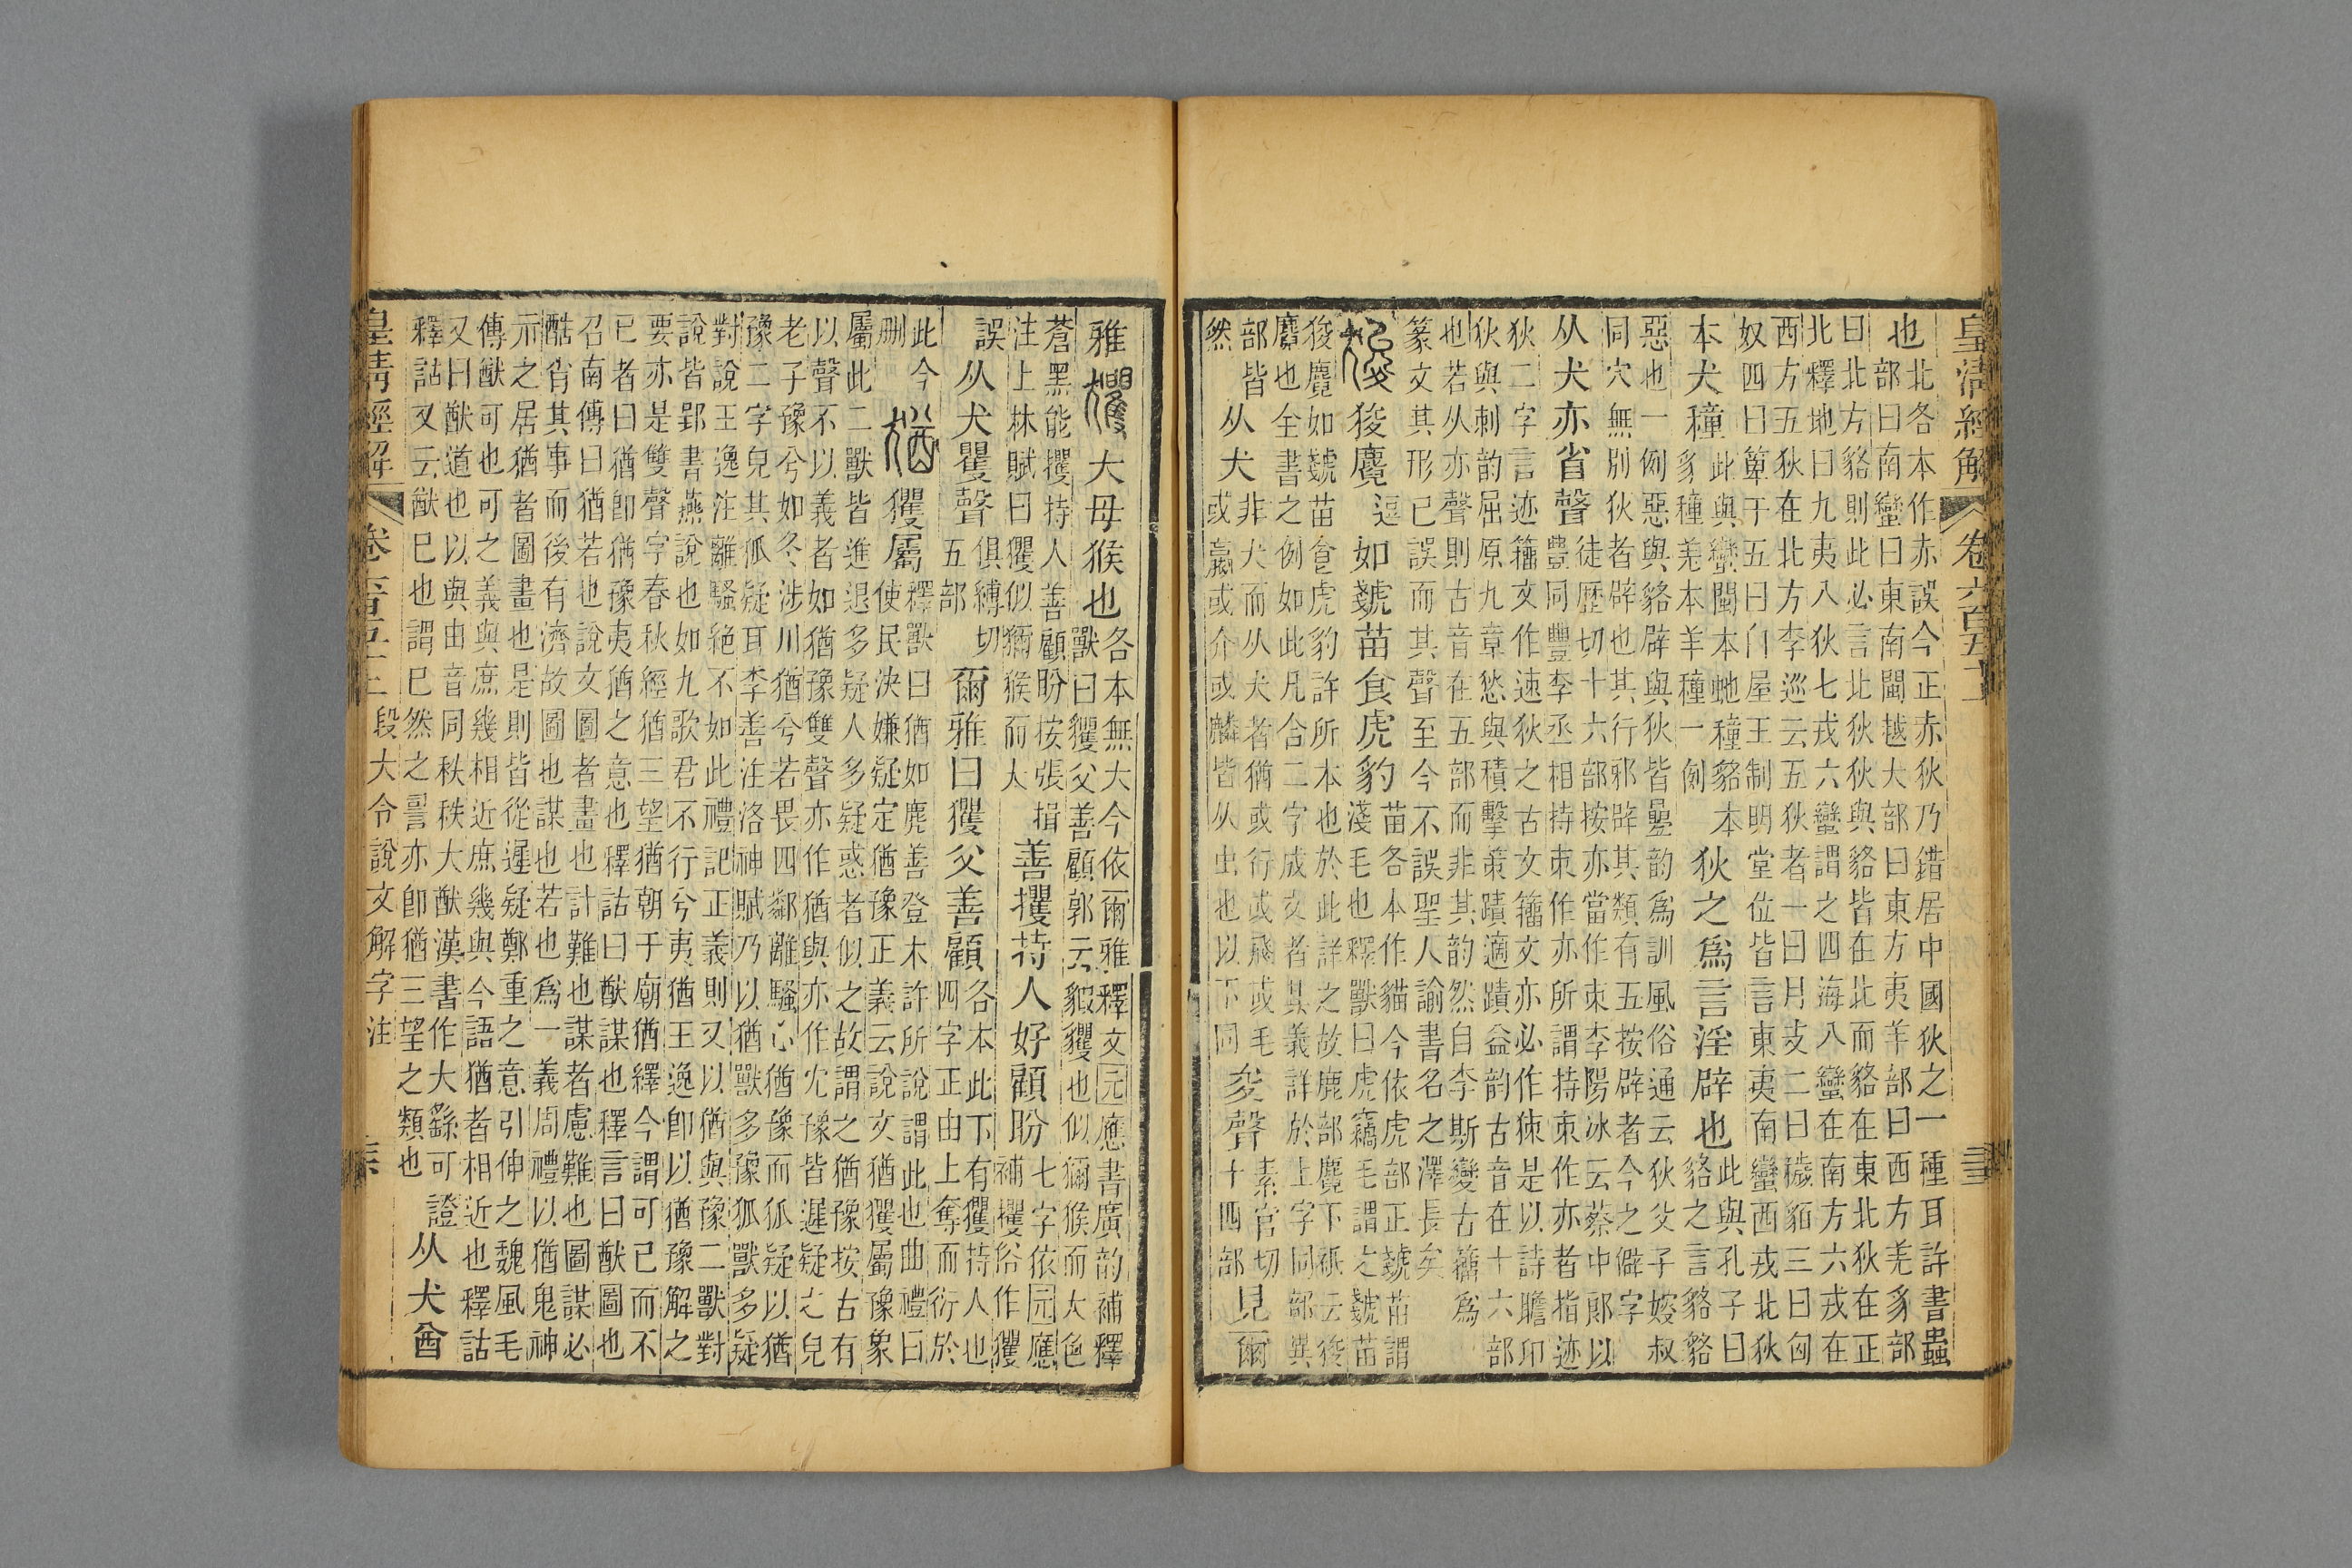 皇清經解 卷六百五十一
也北各本作赤誤今正赤狄乃錯居中國狄之一種耳許書蟲
部曰南蠻曰東南閩越大部曰東方夷羊部曰西方羌豸部
曰北方貉則此必言北狄狄與貉皆在北而貉在東北狄在正
北釋地曰九夷八狄七戎六蠻謂之四海八蠻在南方六戎在
西方五狄在北方李巡云五狄者一曰月支二曰穢貊三曰匈
奴四曰箄于五曰白屋王制明堂位皆言東夷南蠻西戎北狄
本犬種此與蠻閩本蛇種貉本豸種羌本羊種一例狄之爲言淫辟也此與孔子曰貉之言貉貉
惡也一例惡與貉辟與狄皆曡韵爲訓風俗通云狄父子嫂叔
同穴無別狄者辟也其行邪辟其類有五按辟者今之僻字
从犬亦省聲徒歷切十六部按亦當作朿李陽冰云蔡中郎以豐同豊李丞相持朿作亦所謂持朿作亦者指迹
狄二字言迹籒文作速狄之古文籒文亦必作㹤是以詩瞻卬
狄與刺韵屈原九章愁與積擊策蹟適蹟益韵古音在十六部
也若从亦聲則古音在五部而非其韵然自李斯變古籒爲
篆文其形已誤而其聲至今不誤聖人諭書名之澤長矣
狻狻麑逗如虦苗食虎豹苗各本作貓今依虎部正虦苗謂淺毛也釋獸曰虎竊毛謂之虦苗
狻麑如虦苗食虎豹許所本也於此詳之故鹿部麑下祇云狻
麑也全書之例如此凡合二字成文者其義詳於上字同部異
部皆然从犬非犬而从犬者猶或行或飛或毛或蠃或介或鱗皆从虫也以下同夋聲素官切十四部見爾
雅玃大母猴也各本無大今依爾雅釋文元應書廣韵補釋獸曰玃父善顧郭云貑玃也似獼猴而大色
蒼黑能攫持人善顧盼按張揖注上林賦曰玃似獼猴而大善攫持人好顧盼七字依元應補攫俗作玃
誤从犬矍聲俱縛切五部爾雅曰玃父善顧各本此下有玃持人也四字正由上奪而衍於
此今刪猶玃屬釋獸曰猶如麂善登木許所說謂此也曲禮曰使民決嫌疑定猶豫正義云說文猶玃屬豫象
屬此二獸皆進退多疑人多疑惑者似之故謂之猶豫按古有
以聲不以義者如猶豫雙聲亦作猶與亦作冘豫皆遲疑之皃
老子豫兮如冬涉川猶兮若畏四鄰離騷心猶豫而狐疑以猶
豫二字皃其狐疑耳李善注洛神賦乃以猶獸多豫狐獸多疑
對說王逸注離騷絕不如此禮記正義則又以猶與豫二獸對
說皆郢書燕說也如九歌君不行兮夷猶王逸卽以猶豫解之
要亦是雙聲字春秋經猶三望猶朝于廟猶繹今謂可已而不
已者曰猶卽猶豫夷猶之意也釋詁曰猷謀也釋言曰猷圖也
召南傳曰猶若也說文圖者畫也計難也謀者慮難也圖謀必
酷肖其事而後有濟故圖也謀也若也爲一義周禮以猶鬼神
示之居猶者圖畫也是則皆從遲疑鄭重之意引伸之魏風毛
傳猷可也可之義與庶幾相近庶幾與今語猶者相近也釋詁
又曰猷道也以與由音同秩秩大猷漢書作大繇可證
釋詁又云猷已也謂已然之詞亦卽猶三望之類也从犬酋
皇清經解 段大令說文解字注